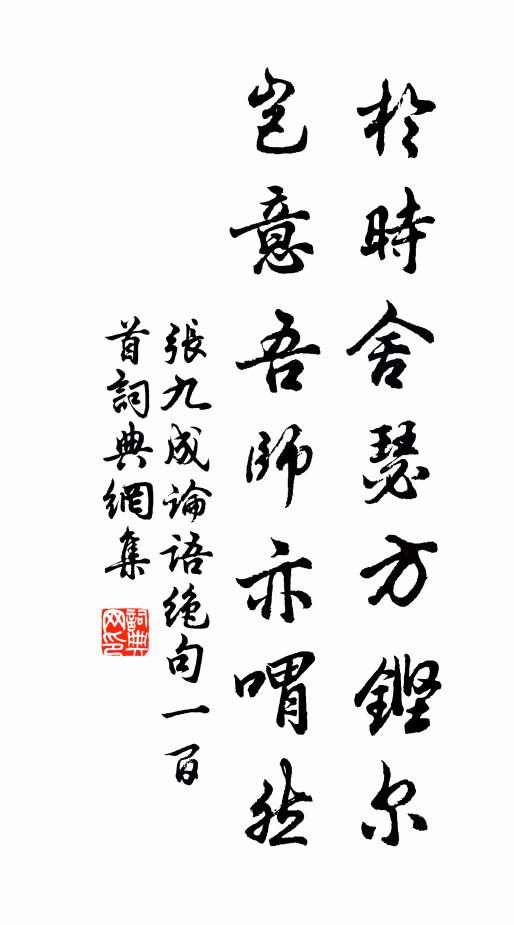 於時舍瑟方鏗尔
豈意吾師亦喟然
張九成論語绝句一百
首詞典網集
詞典
网印